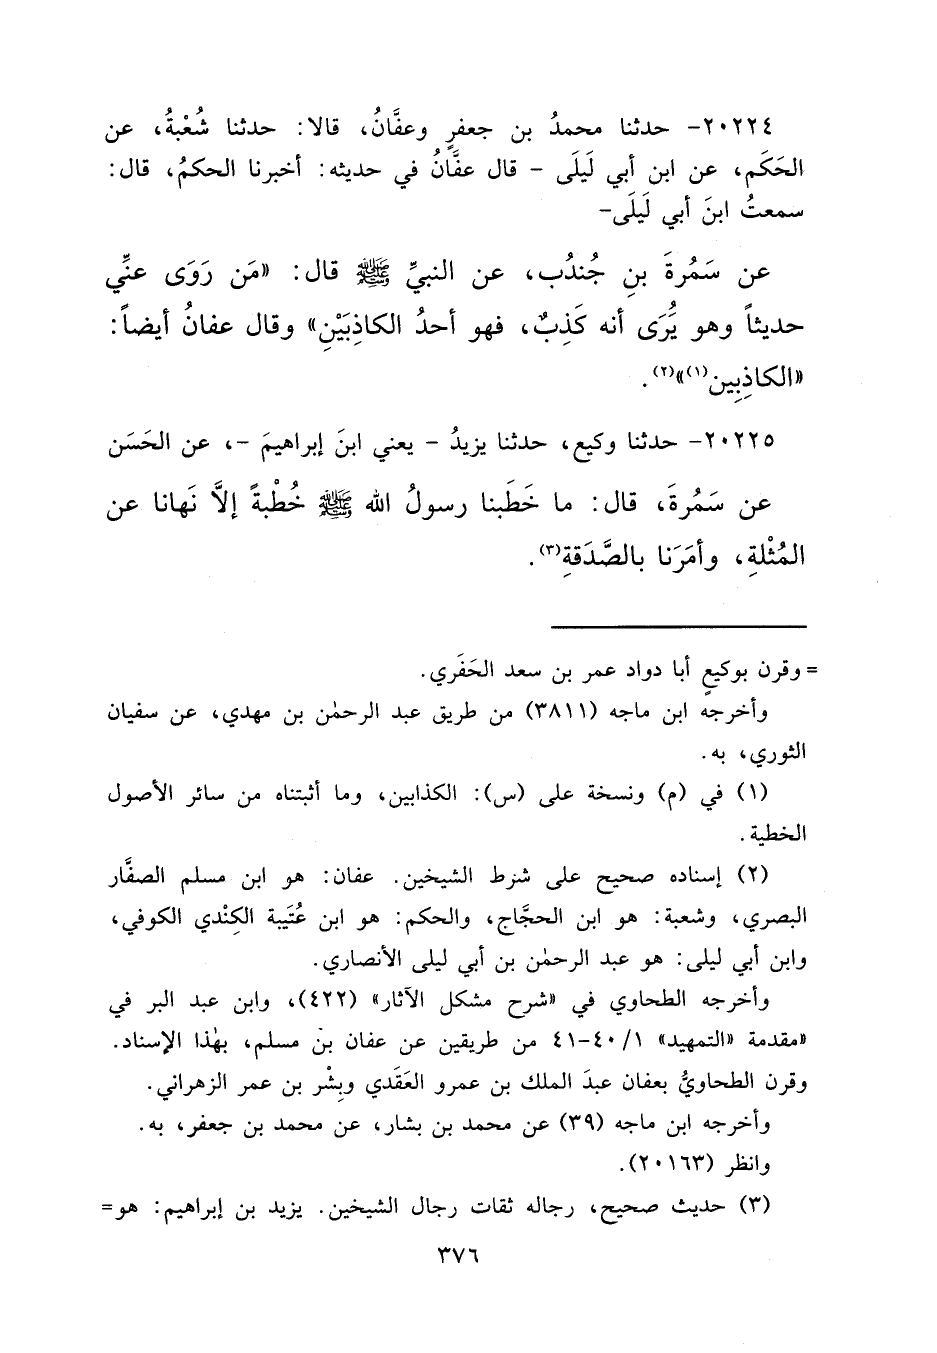 ٢٠٢٢٤- حدثنا محمدُ بن جعفرٍ وعفَّانُ، قالا: حدثنا شُعْبةُ، عن
الحَكَم، عن ابن أبي لَيلَى - قال عفَّانُ في حديثه: أخبرنا الحكمُ، قال:
سمعتُ ابنَ أبي لَيلَى-
عن سَمُرةَ بنِ جُندُب، عن النبيِّ ﷺ قال: «مَن رَوَى عنِّي
حديثاً وهو يُرَى أنه كَذِبٌ، فهو أحدُ الكاذِبَيْنِ» وقال عفانُ أيضاً:
«الكاذِبِين(١)»(٢).
٢٠٢٢٥- حدثنا وكيع، حدثنا يزيدُ - يعني ابنَ إبراهيمَ -، عن الحَسَن
عن سَمُرةَ، قال: ما خَطَبنا رسولُ الله ﷺ خُطْبةً إلاَّ نَهانا عن
المُثْلةِ، وأمَرَنا بالصَّدَقةِ(٣).
= وقرن بوكيعٍ أبا دواد عمر بن سعد الحَفَري.
وأخرجه ابن ماجه (٣٨١١) من طريق عبد الرحمٰن بن مهدي، عن سفيان
الثوري، به.
(١) في (م) ونسخة على (س): الكذابين، وما أثبتناه من سائر الأصول
الخطية.
(٢) إسناده صحيح على شرط الشيخين. عفان: هو ابن مسلم الصفَّار
البصري، وشعبة: هو ابن الحجَّاج، والحكم: هو ابن عُتَيبة الكِنْدي الكوفي،
وابن أبي ليلى: هو عبد الرحمٰن بن أبي ليلى الأنصاري.
وأخرجه الطحاوي في «شرح مشكل الآثار» (٤٢٢)، وابن عبد البر في
«مقدمة «التمهيد» ٤٠/١-٤١ من طريقين عن عفان بن مسلم، بهٰذا الإسناد.
وقرن الطحاويُّ بعفان عبدَ الملك بن عمرو العَقَدي وبِشْر بن عمر الزهراني.
وأخرجه ابن ماجه (٣٩) عن محمد بن بشار، عن محمد بن جعفر، به.
وانظر (٢٠١٦٣).
(٣) حديث صحيح، رجاله ثقات رجال الشيخين. يزيد بن إبراهيم: هو=
٣٧٦